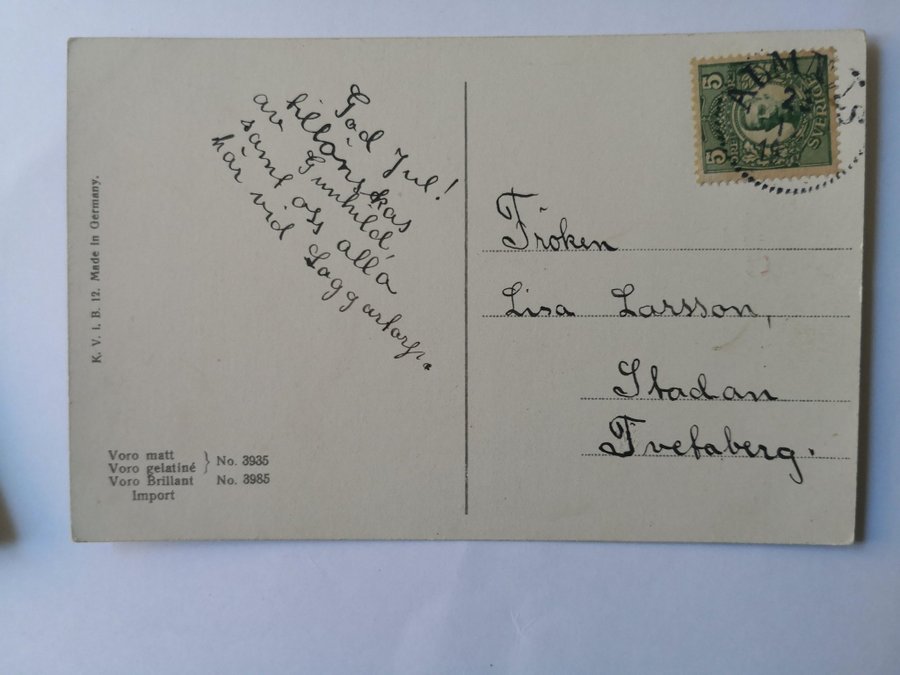 God Jul!
tillönskas
av Gunhild
samt oss alla
här vid Laggartorp.
K. V. i. B. 12. Made in Germany.
Voro matt
Voro gelatiné } No. 3935
Voro Brillant No. 3985
Import
5 5
SVERIGE
Fröken
Lisa Larsson,
Stadan
Tvetaberg.